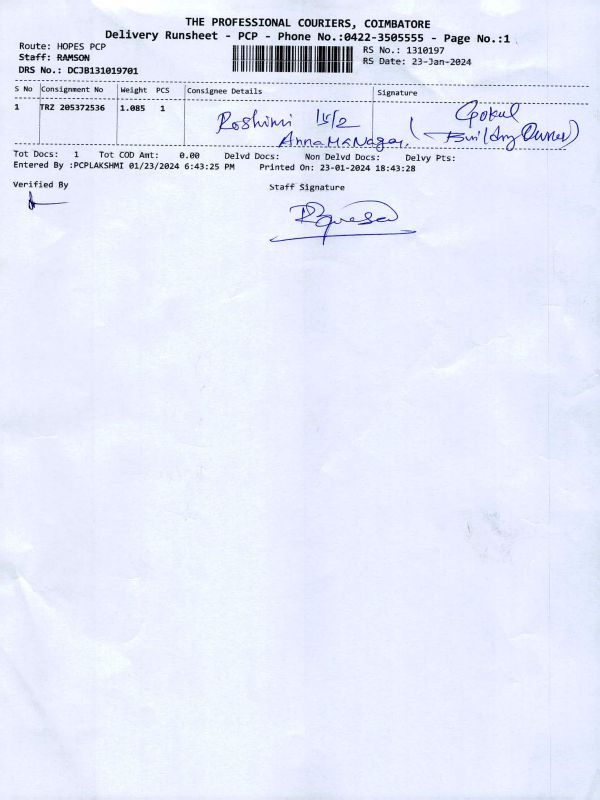 THE PROFESSIONAL COURIERS, COIMBATORE
Delivery Runsheet - PCP - Phone No.:0422-3505555 - Page No.:1
Route: HOPES PCP
RS No.: 1310197
Staff: RAMSON
RS Date: 23-Jan-2024
DRS No.: DCJB131019701
S No Consignment No Weight PCS Consignee Details Signature
1 TRZ 205372536 1.085 1 Roshimi Gokul
Anna Nagar, (Building Owner)
Tot Docs: 1 Tot COD Amt: 0.00 Delvd Docs: Non Delvd Docs: Delvy Pts:
Entered By :PCPLAKSHMI 01/23/2024 6:43:25 PM Printed On: 23-01-2024 18:43:28
Verified By
Staff Signature